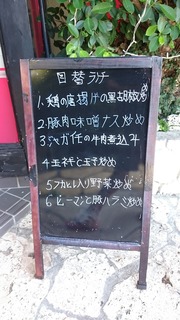 日替ランチ
1.鶏の唐揚げの黒胡椒炒め
2.豚肉味噌ナス炒め
3.ジャガ任の牛肉煮込み
4玉ネギと玉子炒め
5フカヒレ入り野菜炒め
6ピーマンと豚ハラミ炒め